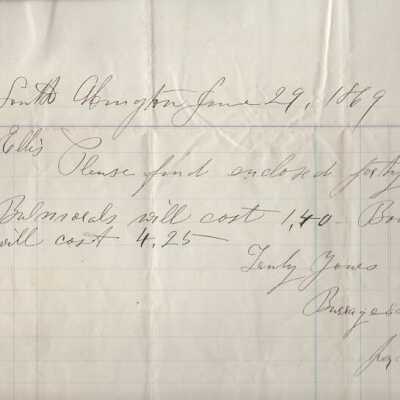 South Abington June 29, 1869
Ellis
Please find enclosed forty
Balmorals will cost 1,40
will cost 4,25
Truly Yours